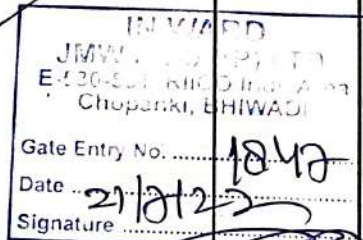 IN WARD
JMW (P) LTD
E- RIICO Indl. Area
Chopanki, BHIWADI
Gate Entry No. .......... 1842
Date .. 21/2/22
Signature ..........